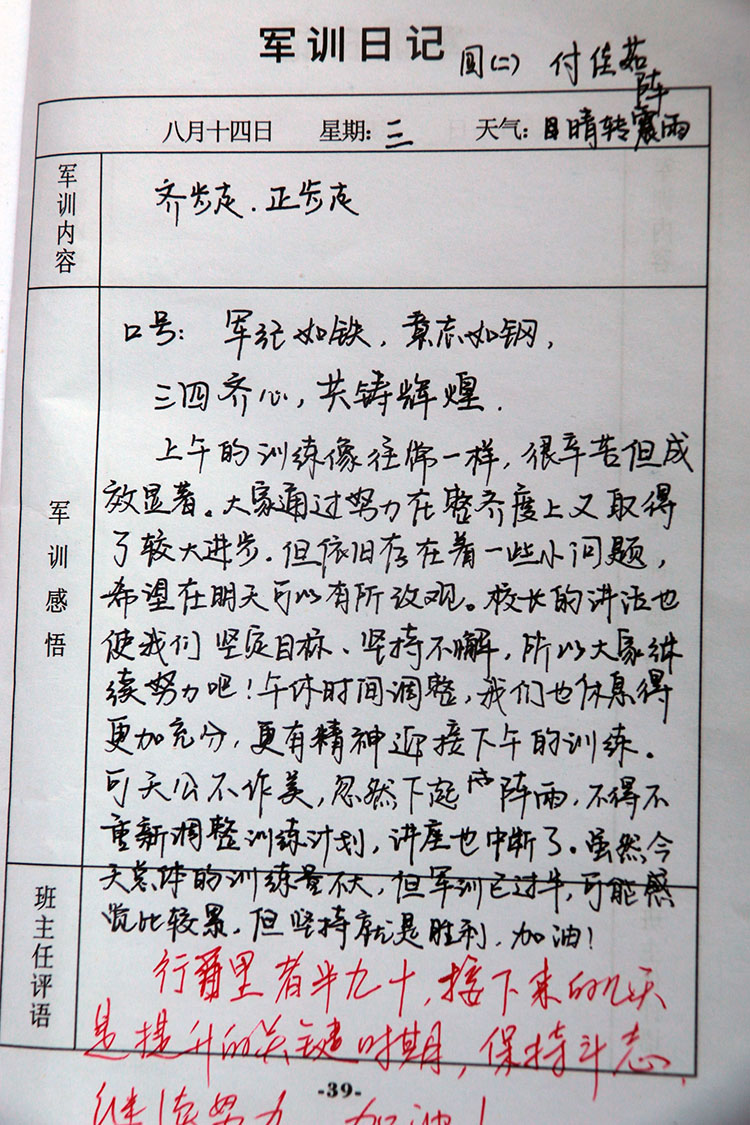 军训日记
圆(二) 付佳茹
八月十四日 星期：三 天气：晴转雷阵雨
军训内容
齐步走．正步走
军训感悟
口号： 军纪如铁，意志如钢，
三四齐心，共铸辉煌．
上午的训练像往常一样，很辛苦但成
效显著。大家通过努力在整齐度上又取得
了较大进步．但依旧存在着一些小问题，
希望在明天可以有所改观。校长的讲话也
使我们坚定目标、坚持不懈，所以大家继
续努力吧！午休时间调整，我们也休息得
更加充分，更有精神迎接下午的训练．
可天公不作美，忽然下起阵雨，不得不
重新调整训练计划，讲座也中断了．虽然今
天总体的训练量不大，但军训已过半，可能感
觉比较累，但坚持就是胜利，加油！
班主任评语
行百里者半九十，接下来的几天
是提升的关键时期，保持斗志，
继续努力，加油！
-39-